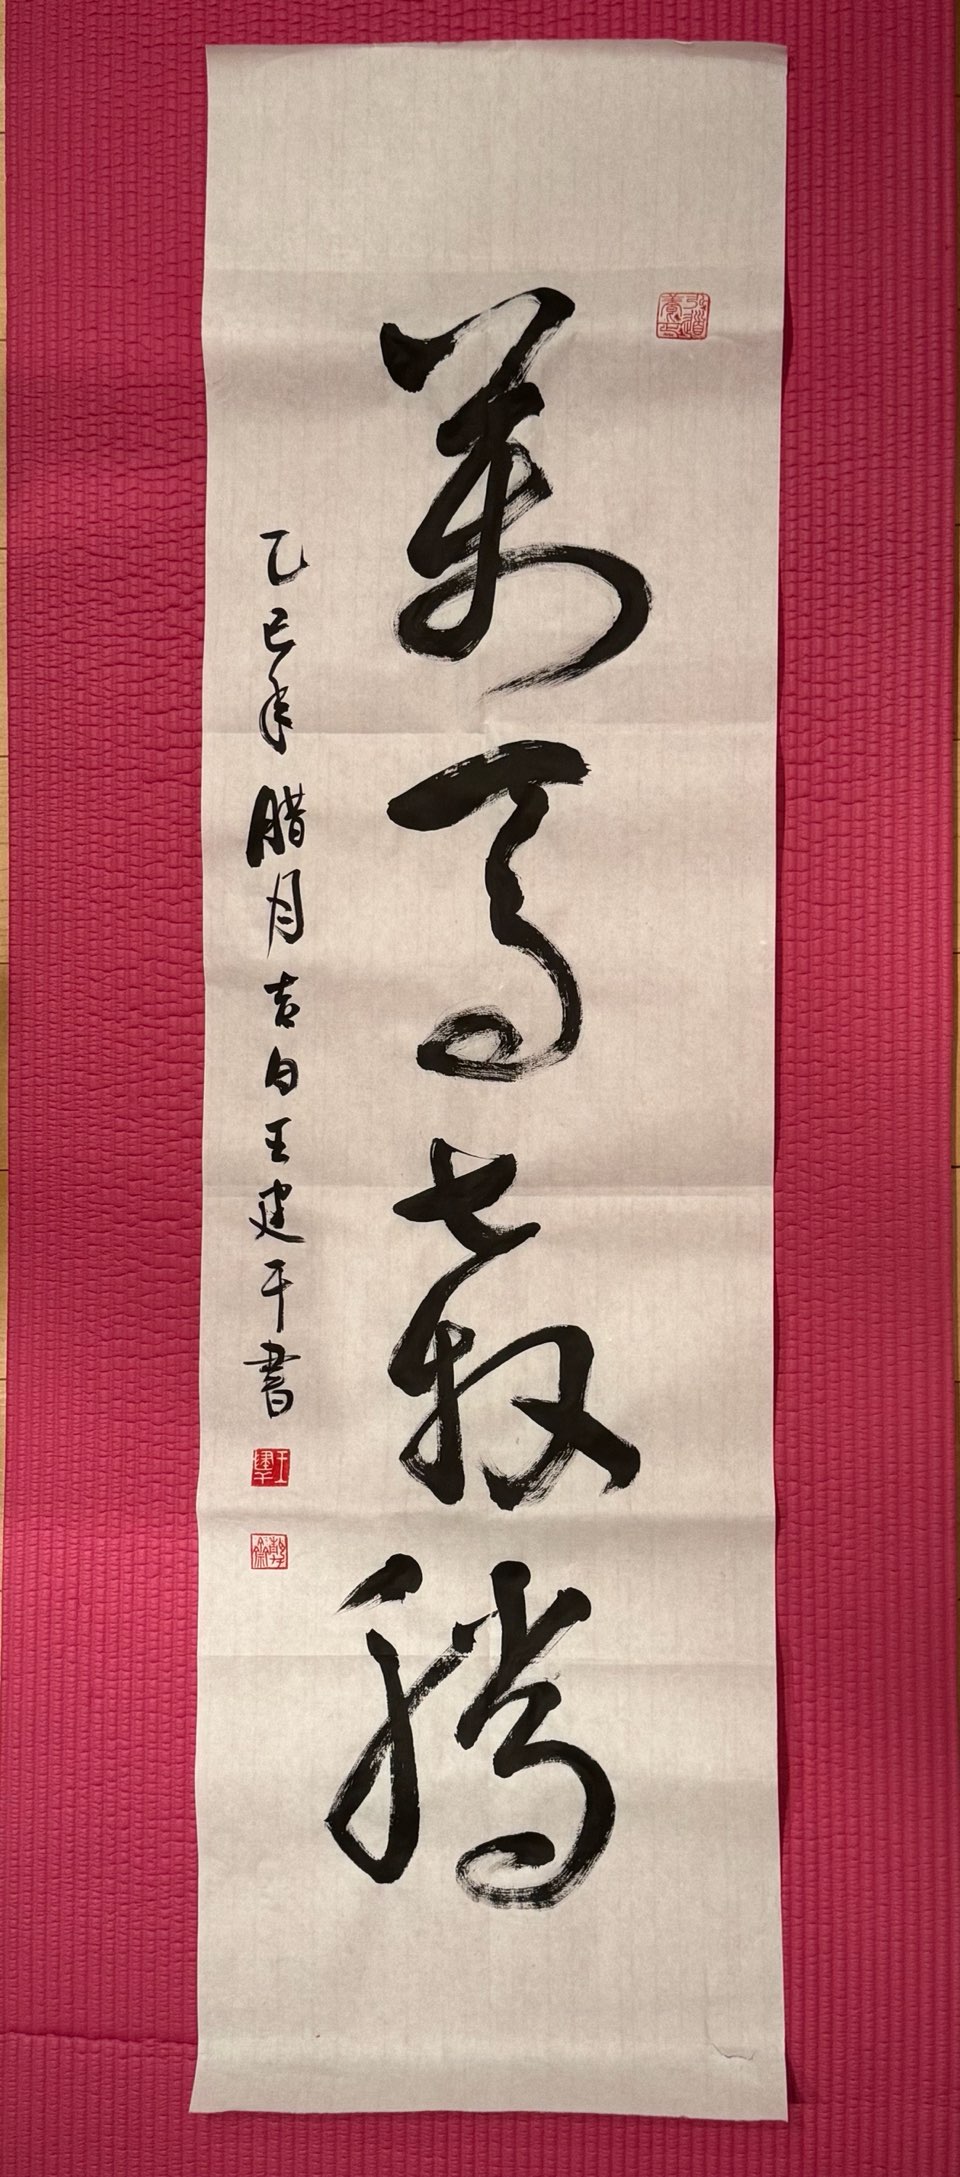 萬馬奔騰
乙巳年臘月吉日王建干書